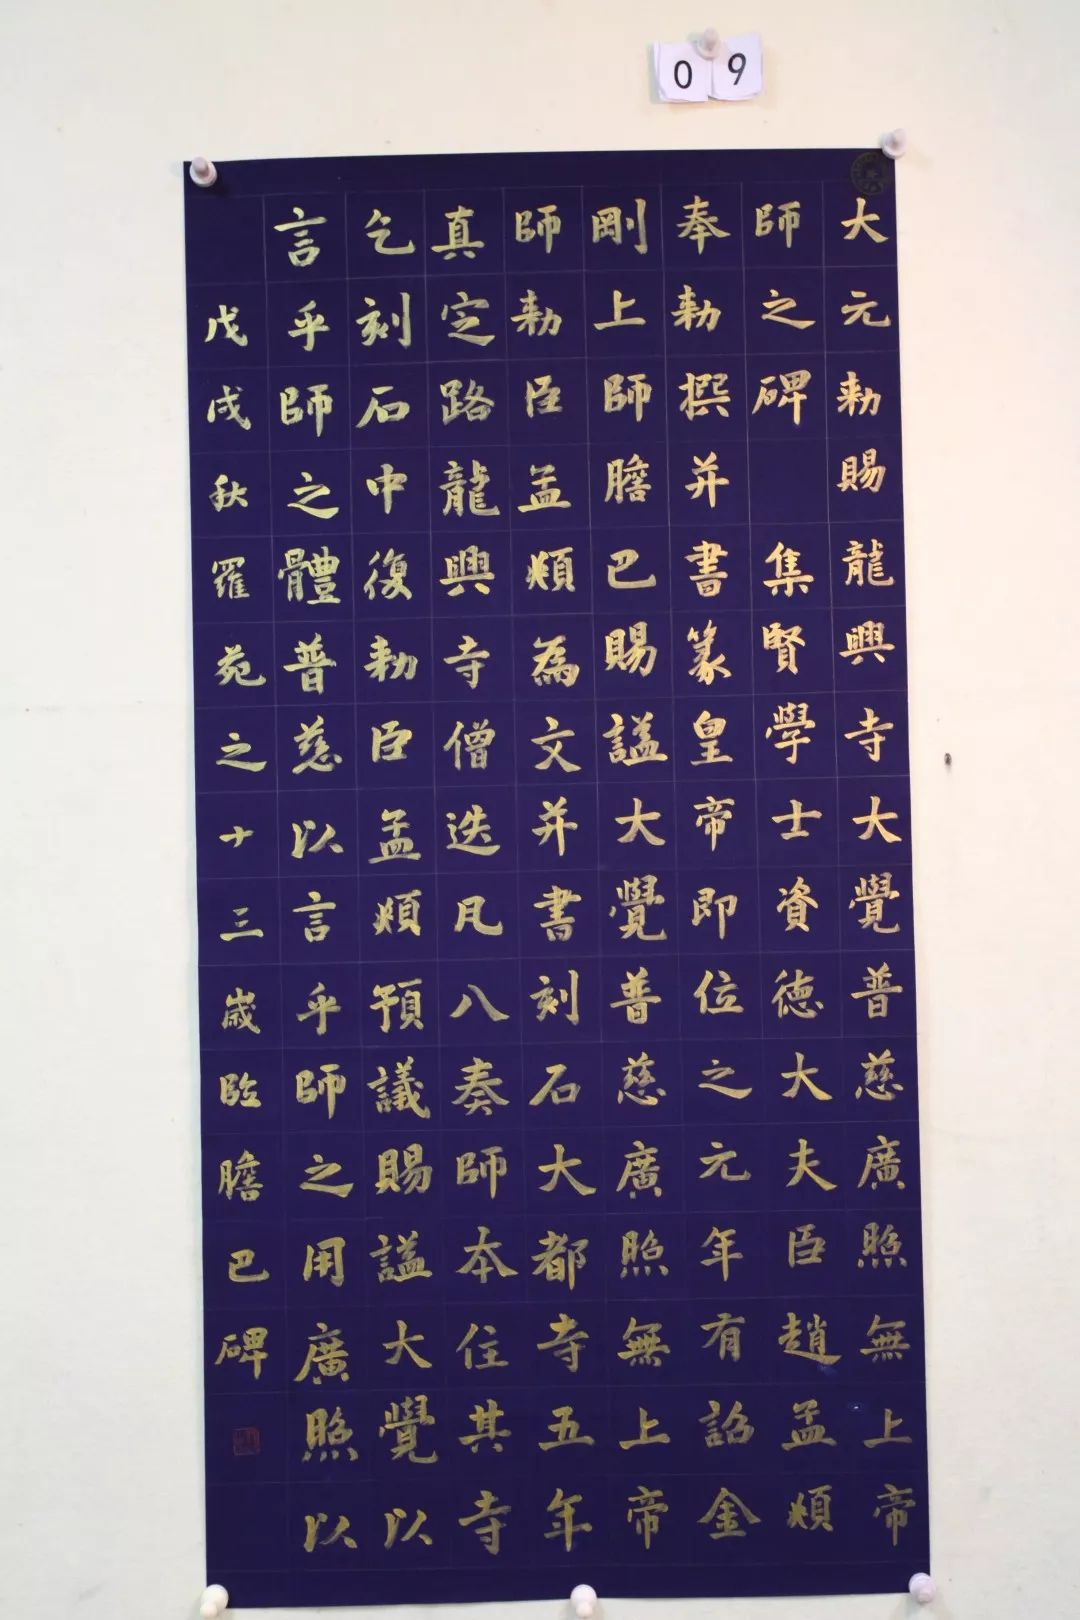 09
大元勅賜龍興寺大覺普慈廣照無上帝
師之碑 集賢學士資德大夫臣趙孟頫
奉勅撰并書篆皇帝即位之元年有詔金
剛上師膽巴賜謚大覺普慈廣照無上帝
師勅臣孟頫為文并書刻石大都寺五年
真定路龍興寺僧迭凡八奏師本住其寺
乞刻石中復勅臣孟頫預議賜謚大覺以
言乎師之體普慈以言乎師之用廣照以
戊戌秋羅苑之十三歲臨膽巴碑